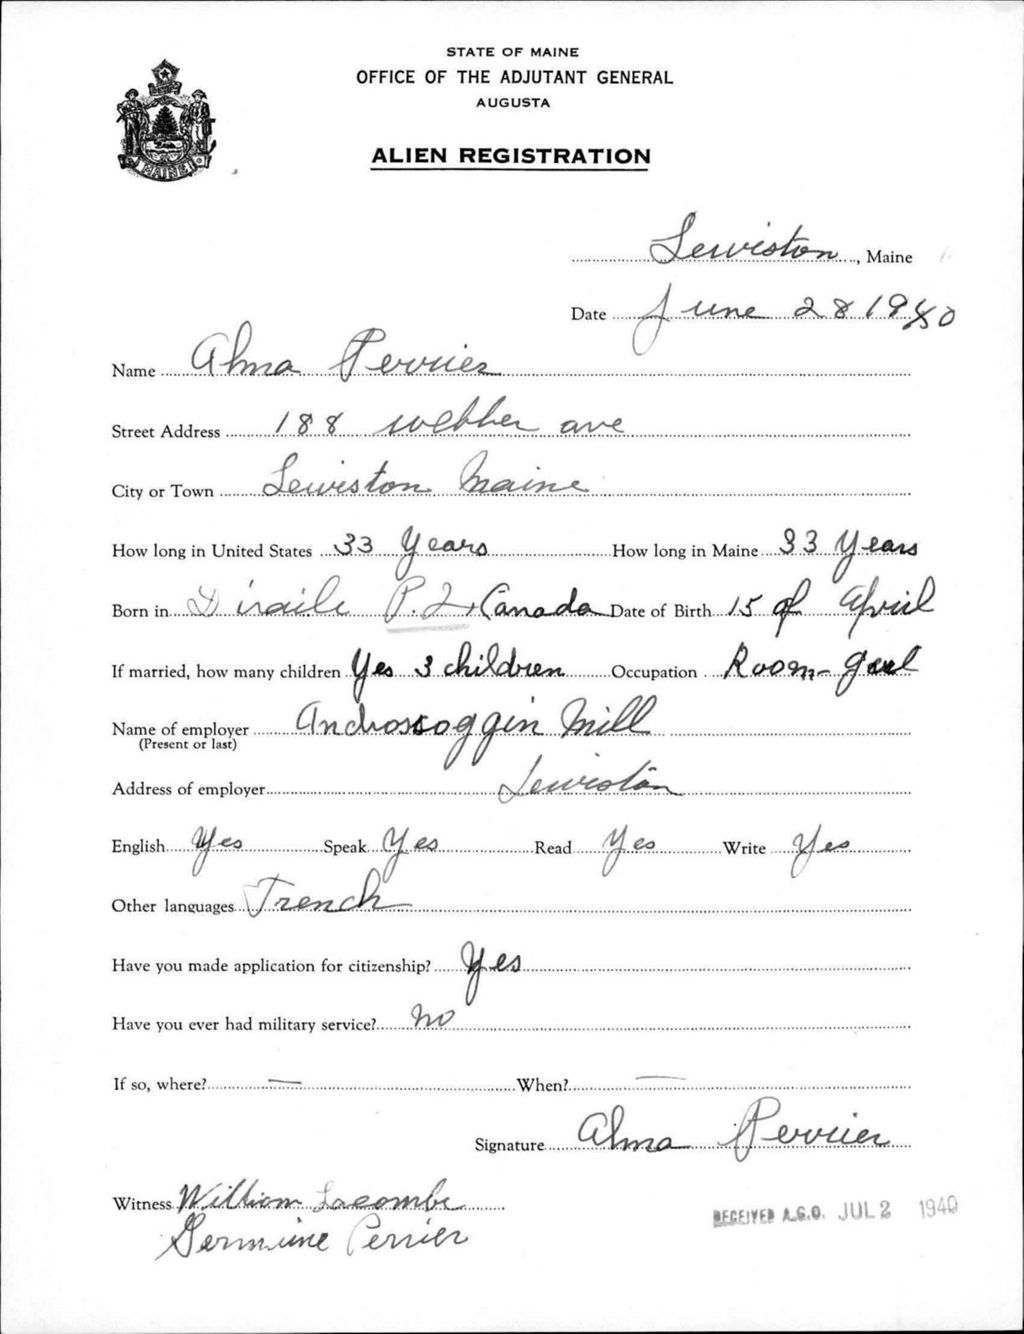 STATE OF MAINE
OFFICE OF THE ADJUTANT GENERAL
AUGUSTA
ALIEN REGISTRATION
MAINE
Lewiston, Maine
Date June 28 1940
Name Alma Perrier
Street Address 188 webber ave
City or Town Lewiston Maine
How long in United States 33 Years How long in Maine 33 Years
Born in P.Q. Canada Date of Birth 15 of April
If married, how many children Yes 3 children Occupation Room-
Name of employer Androscoggin Mill
(Present or last)
Address of employer Lewiston
English Yes Speak Yes Read Yes Write Yes
Other languages French
Have you made application for citizenship? Yes
Have you ever had military service? No
If so, where? — When? —
Signature Alma Perrier
Witness William Lacombe
Germaine Perrier
RECEIVED A.G.O. JUL 2 1940